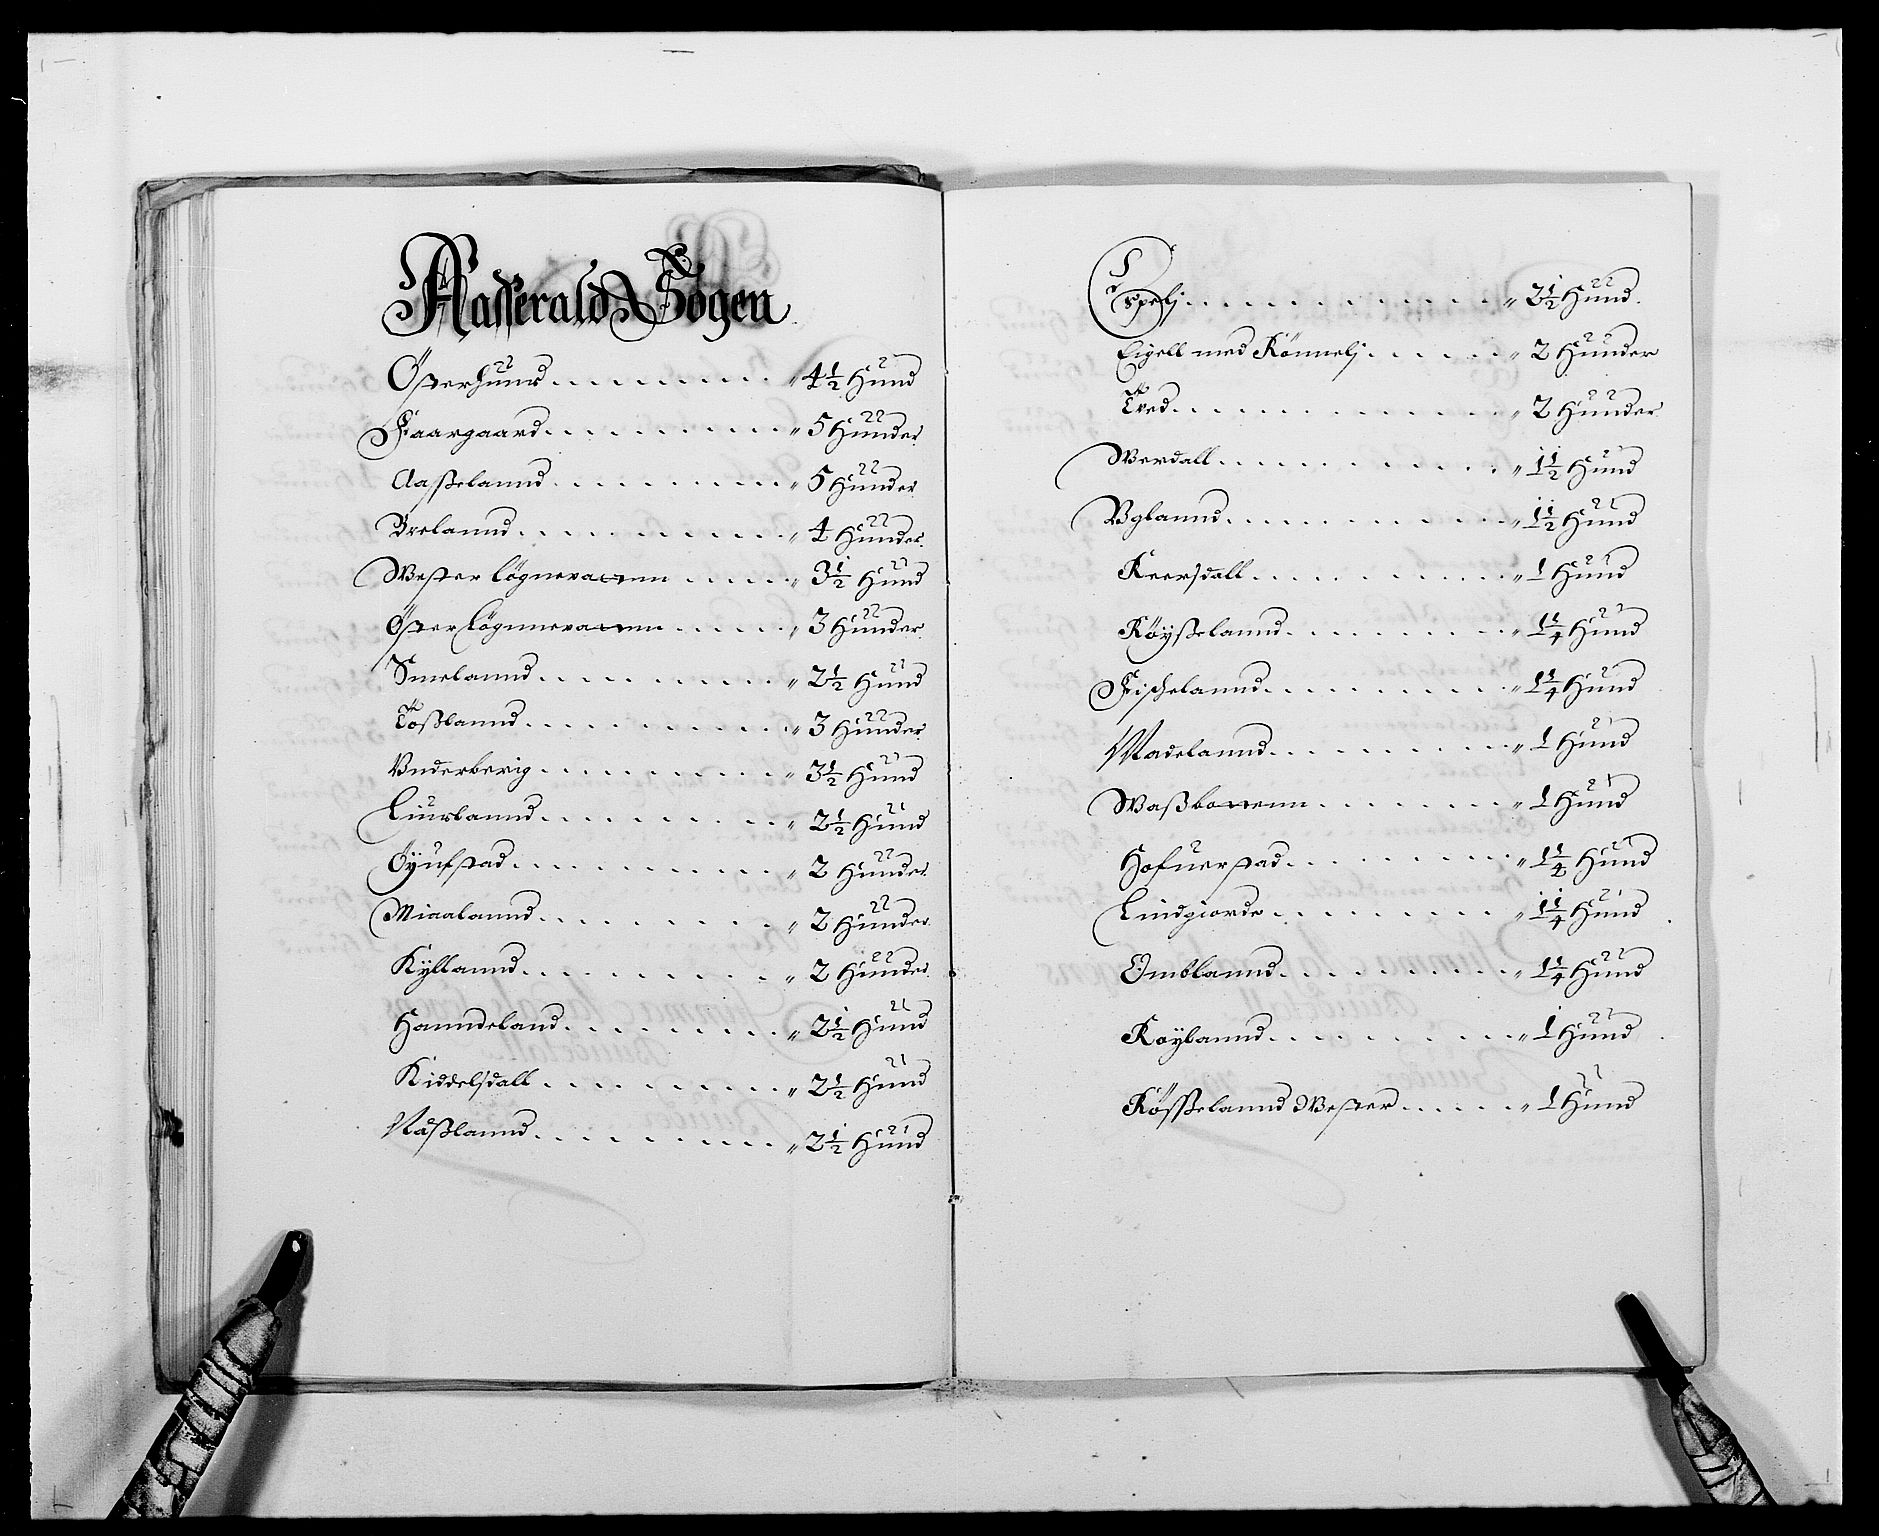 Aasserald Sogen
Österhuud . . . . . . . . . . „ 4½ Hund
Faargaard . . . . . . . . . . „ 5 Hunder
Aasselannd . . . . . . . . . . „ 5 Hunder
Brelannd . . . . . . . . . . . „ 4 Hunder
Wester Lögnevannn . . . . . „ 3½ Hund
Öster Lögnnevannn . . . . . „ 3 Hunder
Smelannd . . . . . . . . . . „ 2½ Hund
Toßlannd . . . . . . . . . . „ 3 Hunder
Vnderberig . . . . . . . . . . „ 3½ Hund
Liurlannd . . . . . . . . . . „ 2½ Hund
Öyufstad . . . . . . . . . . „ 2 Hunder
Miaalannd . . . . . . . . . „ 2 Hunder
Kyllannd . . . . . . . . . . „ 2 Hunder
Hanndeland . . . . . . . . . „ 2½ Hund
Kiddelsdall . . . . . . . . . „ 2½ Hund
Naßlannd . . . . . . . . . . „ 2½ Hund
Espelj . . . . . . . . . . . . „ 2½ Hund
Eigell med Rönnelj . . . . . „ 2 Hunder
Tved . . . . . . . . . . . . . „ 2 Hunder
Werdall . . . . . . . . . . . „ 1½ Hund
Vglannd . . . . . . . . . . . „ 1½ Hund
Reersdall . . . . . . . . . . „ 1 Hund
Röyßelannd . . . . . . . . . „ 1¼ Hund
Fischelannd . . . . . . . . . „ 1¼ Hund
Madelannd . . . . . . . . . „ 1 Hund
Waßbonnenn . . . . . . . . „ 1 Hund
Hofuerstad . . . . . . . . . „ 1½ Hund
Lindgiorde . . . . . . . . . „ 1¼ Hund
Omblannd . . . . . . . . . . „ 1¼ Hund
Röylannd . . . . . . . . . . „ 1 Hund
Rösselannd Wester . . . . . „ 1 Hund